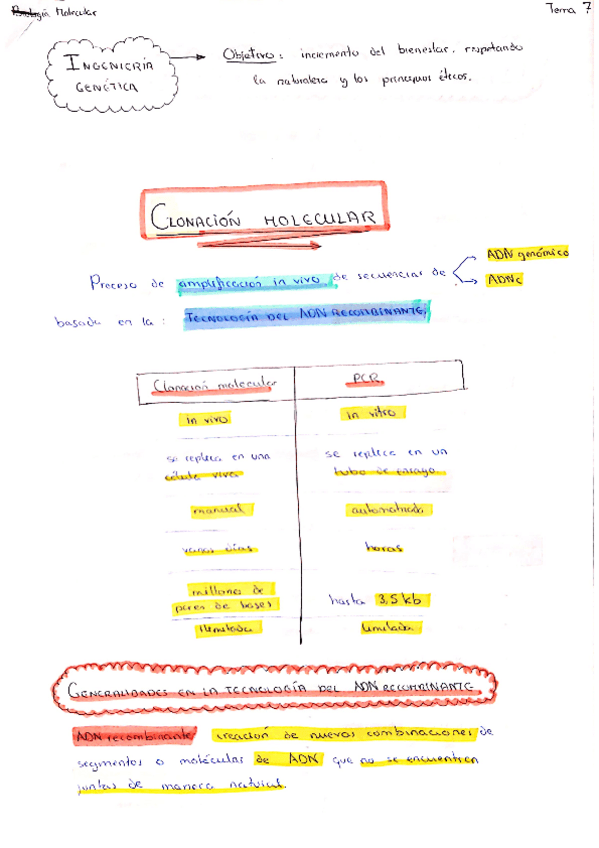 Biología Molecular
Tema 7
INGENIERÍA
GENÉTICA
Objetivo: incremento del bienestar, respetando
la naturaleza y los principios éticos.
CLONACIÓN MOLECULAR
Proceso de amplificación in vivo de secuencias de
ADN genómico
ADNc
basada en la: TECNOLOGÍA DEL ADN RECOMBINANTE.
Clonación molecular PCR
in vivo in vitro
se replica en una se replica en un
célula viva tubo de ensayo
manual automatizada
varios días horas
millones de
pares de bases hasta 3,5 kb
Ilimitada Limitada
GENERALIDADES EN LA TECNOLOGÍA DEL ADN RECOMBINANTE
ADN recombinante: creación de nuevas combinaciones de
segmentos o moléculas de ADN que no se encuentran
juntas de manera natural.